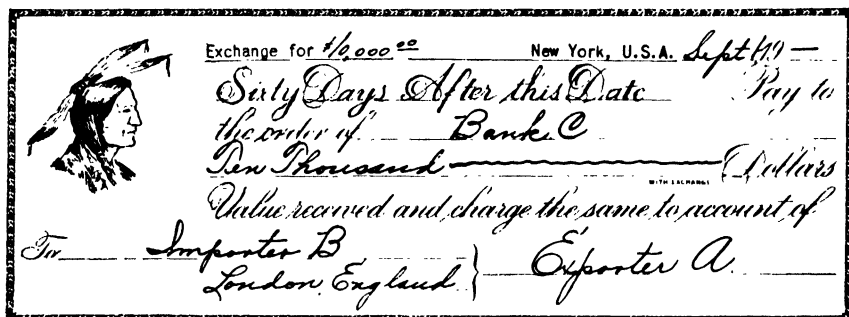 Exchange for $10,000 00 New York, U.S.A. Sept 1, 19—
Sixty Days After this Date Pay to
the order of Bank C
Ten Thousand Dollars
WITH EXCHANGE
Value received and charge the same to account of
To Importer B
London, England } Exporter A